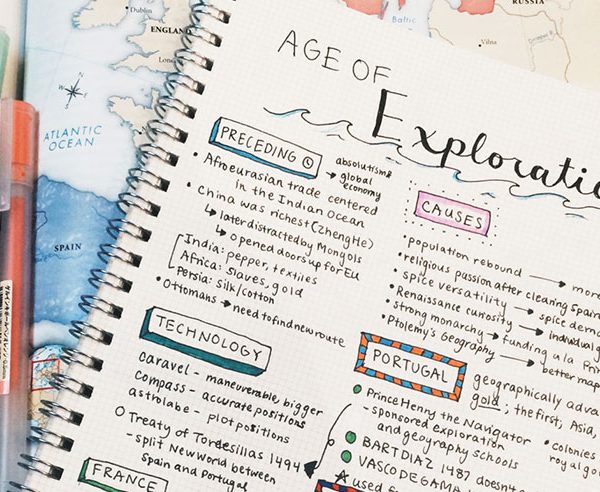 Dublin
ENGLAND
Baltic
RUSSIA
Vilna
ATLANTIC
OCEAN
SPAIN
AGE OF
Exploratio
PRECEDING
absolutism &
→ global
economy
• Afroeurasian trade centered
in the Indian Ocean
• China was richest (Zheng He)
↳ later distracted by Mongols
↳ opened doors up for EU
India: pepper, textiles
Africa: Slaves, gold
Persia: silk/cotton
• Ottomans → need to find new route
CAUSES
• population rebound → more
• religious passion after clearing Spain
• spice versatility → spice dema
• Renaissance curiosity → individual g
• strong monarchy → funding u la Prin
• Ptolemy's Geography → better map
TECHNOLOGY
caravel - maneuverable, bigger
compass - accurate positions
astrolabe - plot positions
O Treaty of Tordesillas 1494
- split New World between
Spain and Portugal
FRANCE
PORTUGAL
geographically adva
gold; the first, Asia,
Prince Henry the Navigator
- sponsored exploration
and geography schools
• colonies
royal go
BART DIAZ 1487 doesn't
VASCO DE GAMA
used f